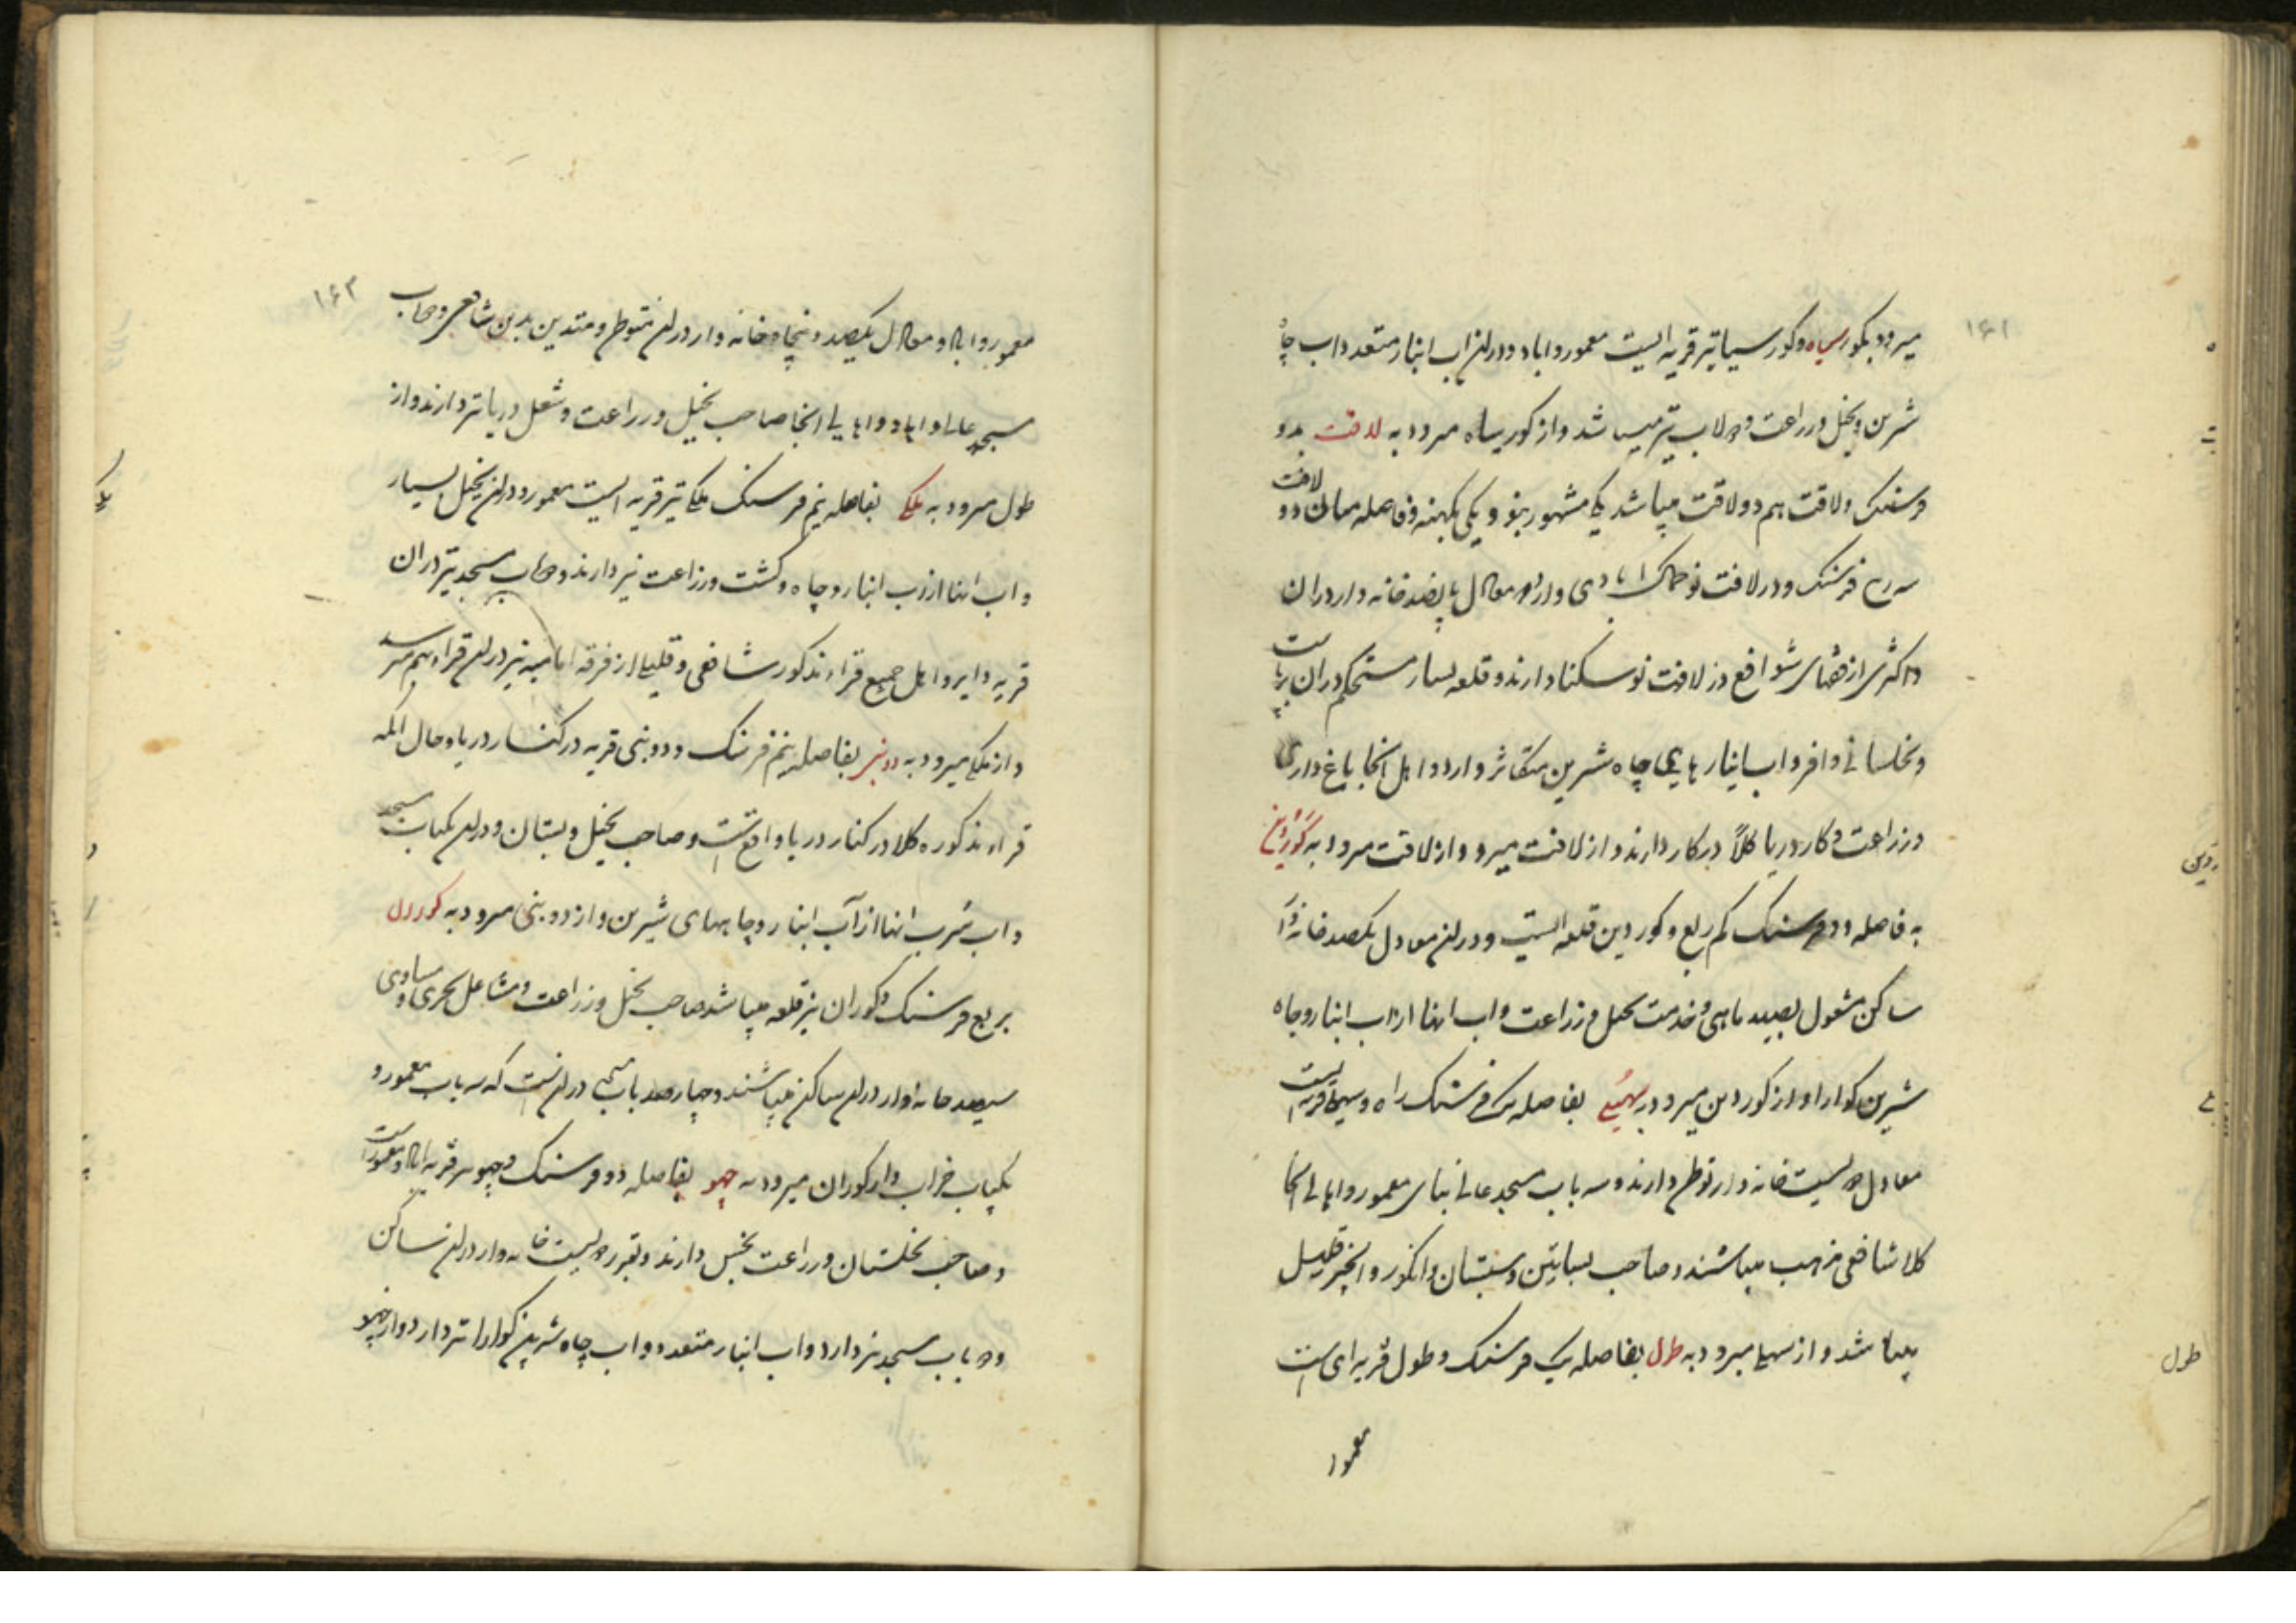 ۱۶۱
میرود بکور سیاه و کور سیاه نیز قریه ایست معمور و اباد و درلن اب انبار متعدد و اب چاه
شرین و نخل و زراعت و دولاب نیز میباشد و از کور سیاه میرود به لافت بدو
فرسنک و لافت هم دو لافت میباشد یکی مشهور بنو و یکی بکهنه و فاصله میان دو لافت
سه ربع فرسنک و در لافت نو خاک ابادی دارد و معادل پانصد خانه وار دران
و اکثری از فقهای شوافع در لافت نو سکنا دارند و قلعه بسیار مستحکم دران برپاست
و نخلستانی وافر و اب انبارهای چاه شرین متکاثر دارد و اهل انجا باغ داری
و زراعت و کار دریا کلاً در کار دارند و از لافت میرود و از لافت میرود به کوردین
به فاصله دو فرسنک کم ربع و کوردین قلعه ایست و درلن معادل یکصد خانه وار
ساکن مشغول بصید ماهی و خدمت نخل و زراعت و اب انها از اب انبار و چاه
شیرین کوارا و از کوردین میرود به سهیلی بفاصله یک فرسنک راه و سهیلی قریه ایست
معادل دویست خانه وار توطن دارند و سه باب مسجد عالی بنای معمور و اهالی انجا
کلا شافعی مذهب میباشند و صاحب بساتین و بستان و انکور و انجیر و نخیل
میباشد و از سهیلی میرود به طول بفاصله یک فرسنک و طول قریه ای است
معمور
طول
۱۶۲
معمور و اباد و معادل یکصد و پنجاه خانه وار درلن متوطن و متدین بدین شافعی و صاحب
مسجد عالی و اباد و اهالی انجا صاحب نخیل و زراعت و شغل دریا نیز دارند و از
طول میرود به ملکی بفاصله نیم فرسنک ملکی نیز قریه ایست معمور و درلن نخیل بسیار
و اب انها از اب انبار و چاه و کشت و زراعت نیز دارند و یکباب مسجد نیز دران
قریه دایر و اهل جمیع قراء مذکور شافعی و قلیلی از فرقه امامیه نیز درلن قراء بهم میرسد
و از ملکی میرود به دوبنی بفاصله نیم فرسنک و دوبنی قریه در کنار دریا و حال انکه
قراء مذکوره کلا در کنار دریا واقع است و صاحب نخیل و بستان و درلن یکباب مسجد
و اب شرب انها از آب انبار و چاههای شیرین و از دوبنی میرود به کوران
بربع فرسنک و کوران نیز قلعه میباشد صاحب نخل و زراعت و مشاغل بحری و مساوی
سیصد خانه وار درلن ساکن میباشند و چهار عدد باب مسجد درلن است که سه باب معمور و
یکباب خراب و از کوران میرود به چهو بفاصله دو فرسنک و چهو نیز قریه اباد و معمور است
و صاحب نخلستان و زراعت بخس دارند و بقدر دویست خانه وار درلن ساکن
و دو باب مسجد نیز دارد و اب انبار متعدد و اب چاه شرین کوارا نیز دارد و از چهو